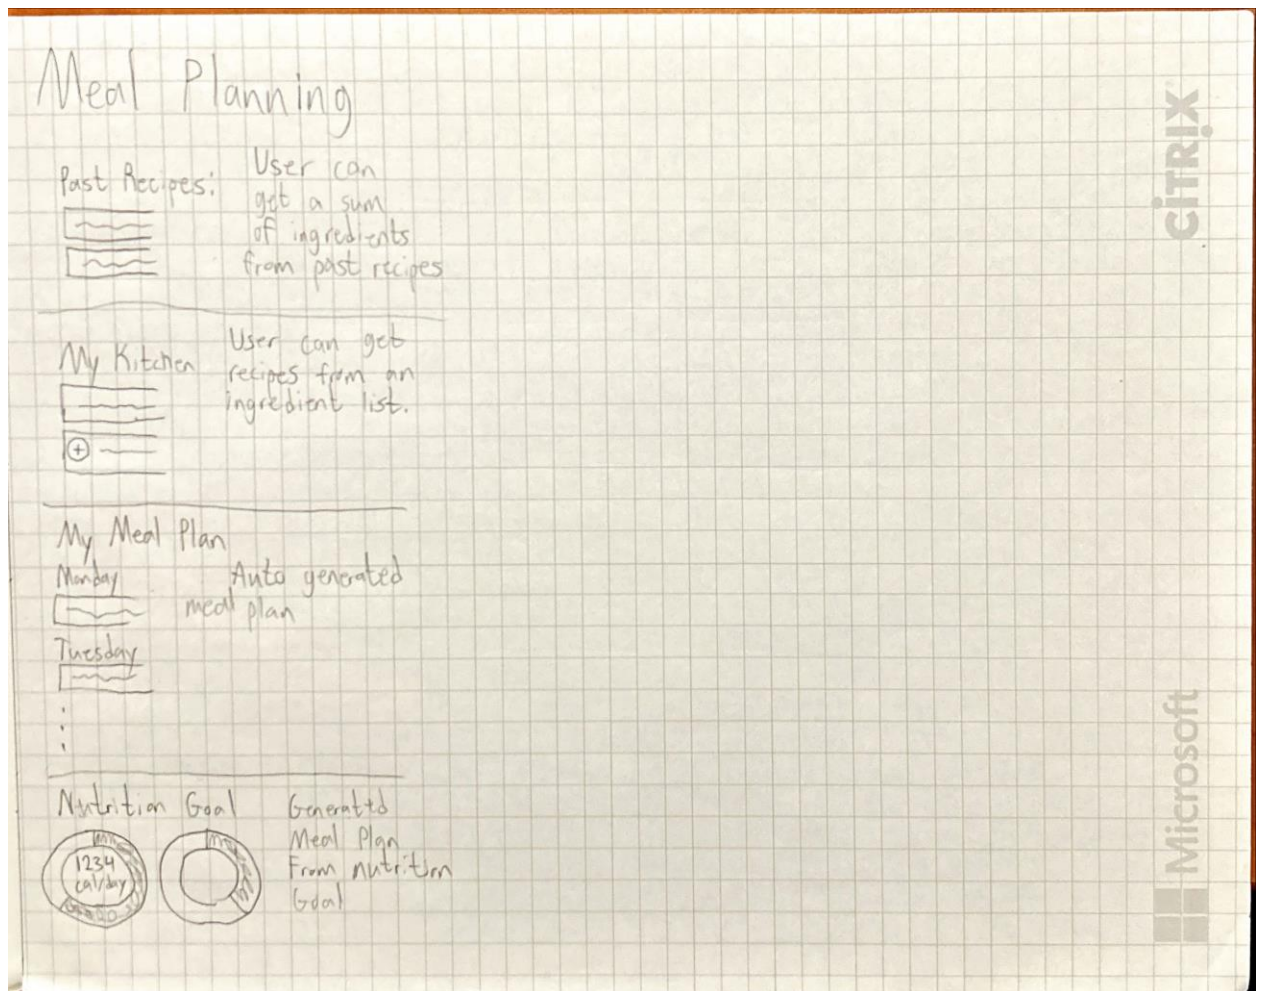 Meal Planning
Past Recipes:
User can
get a sum
of ingredients
from past recipes
My Kitchen
User can get
recipes from an
ingredient list.
+
My Meal Plan
Monday
Auto generated
meal plan
Tuesday
Nutrition Goal
1234
cal/day
Generated
Meal Plan
From nutrition
Goal
CiTRiX
Microsoft